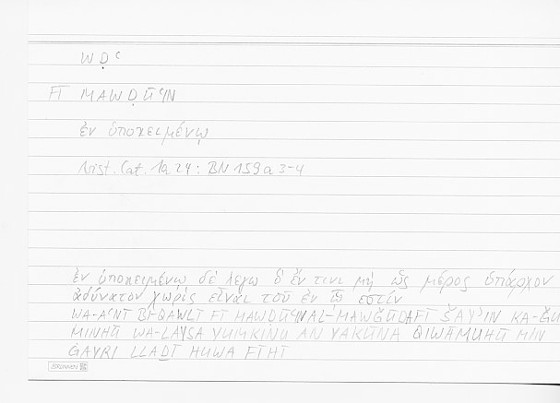 WḌʿ
FĪ MAWḌŪʿIN
ἐν ὑποκειμένῳ
Arist. Cat. 1a24: BN 159a3-4
ἐν ὑποκειμένῳ δὲ λέγω ὃ ἔν τινι μὴ ὡς μέρος ὑπάρχον
ἀδύνατον χωρὶς εἶναι τοῦ ἐν ᾧ ἐστίν
WA-AʿNĪ BI-QAWLĪ FĪ MAWḌŪʿIN AL-MAWǦŪDA FĪ ŠAYʾIN KA-ǦU
MINHU WA-LAYSA YUMKINU AN YAKŪNA QIWĀMUHŪ MIN
ĠAYRI LLAḎĪ HUWA FĪHI
BRUNNEN